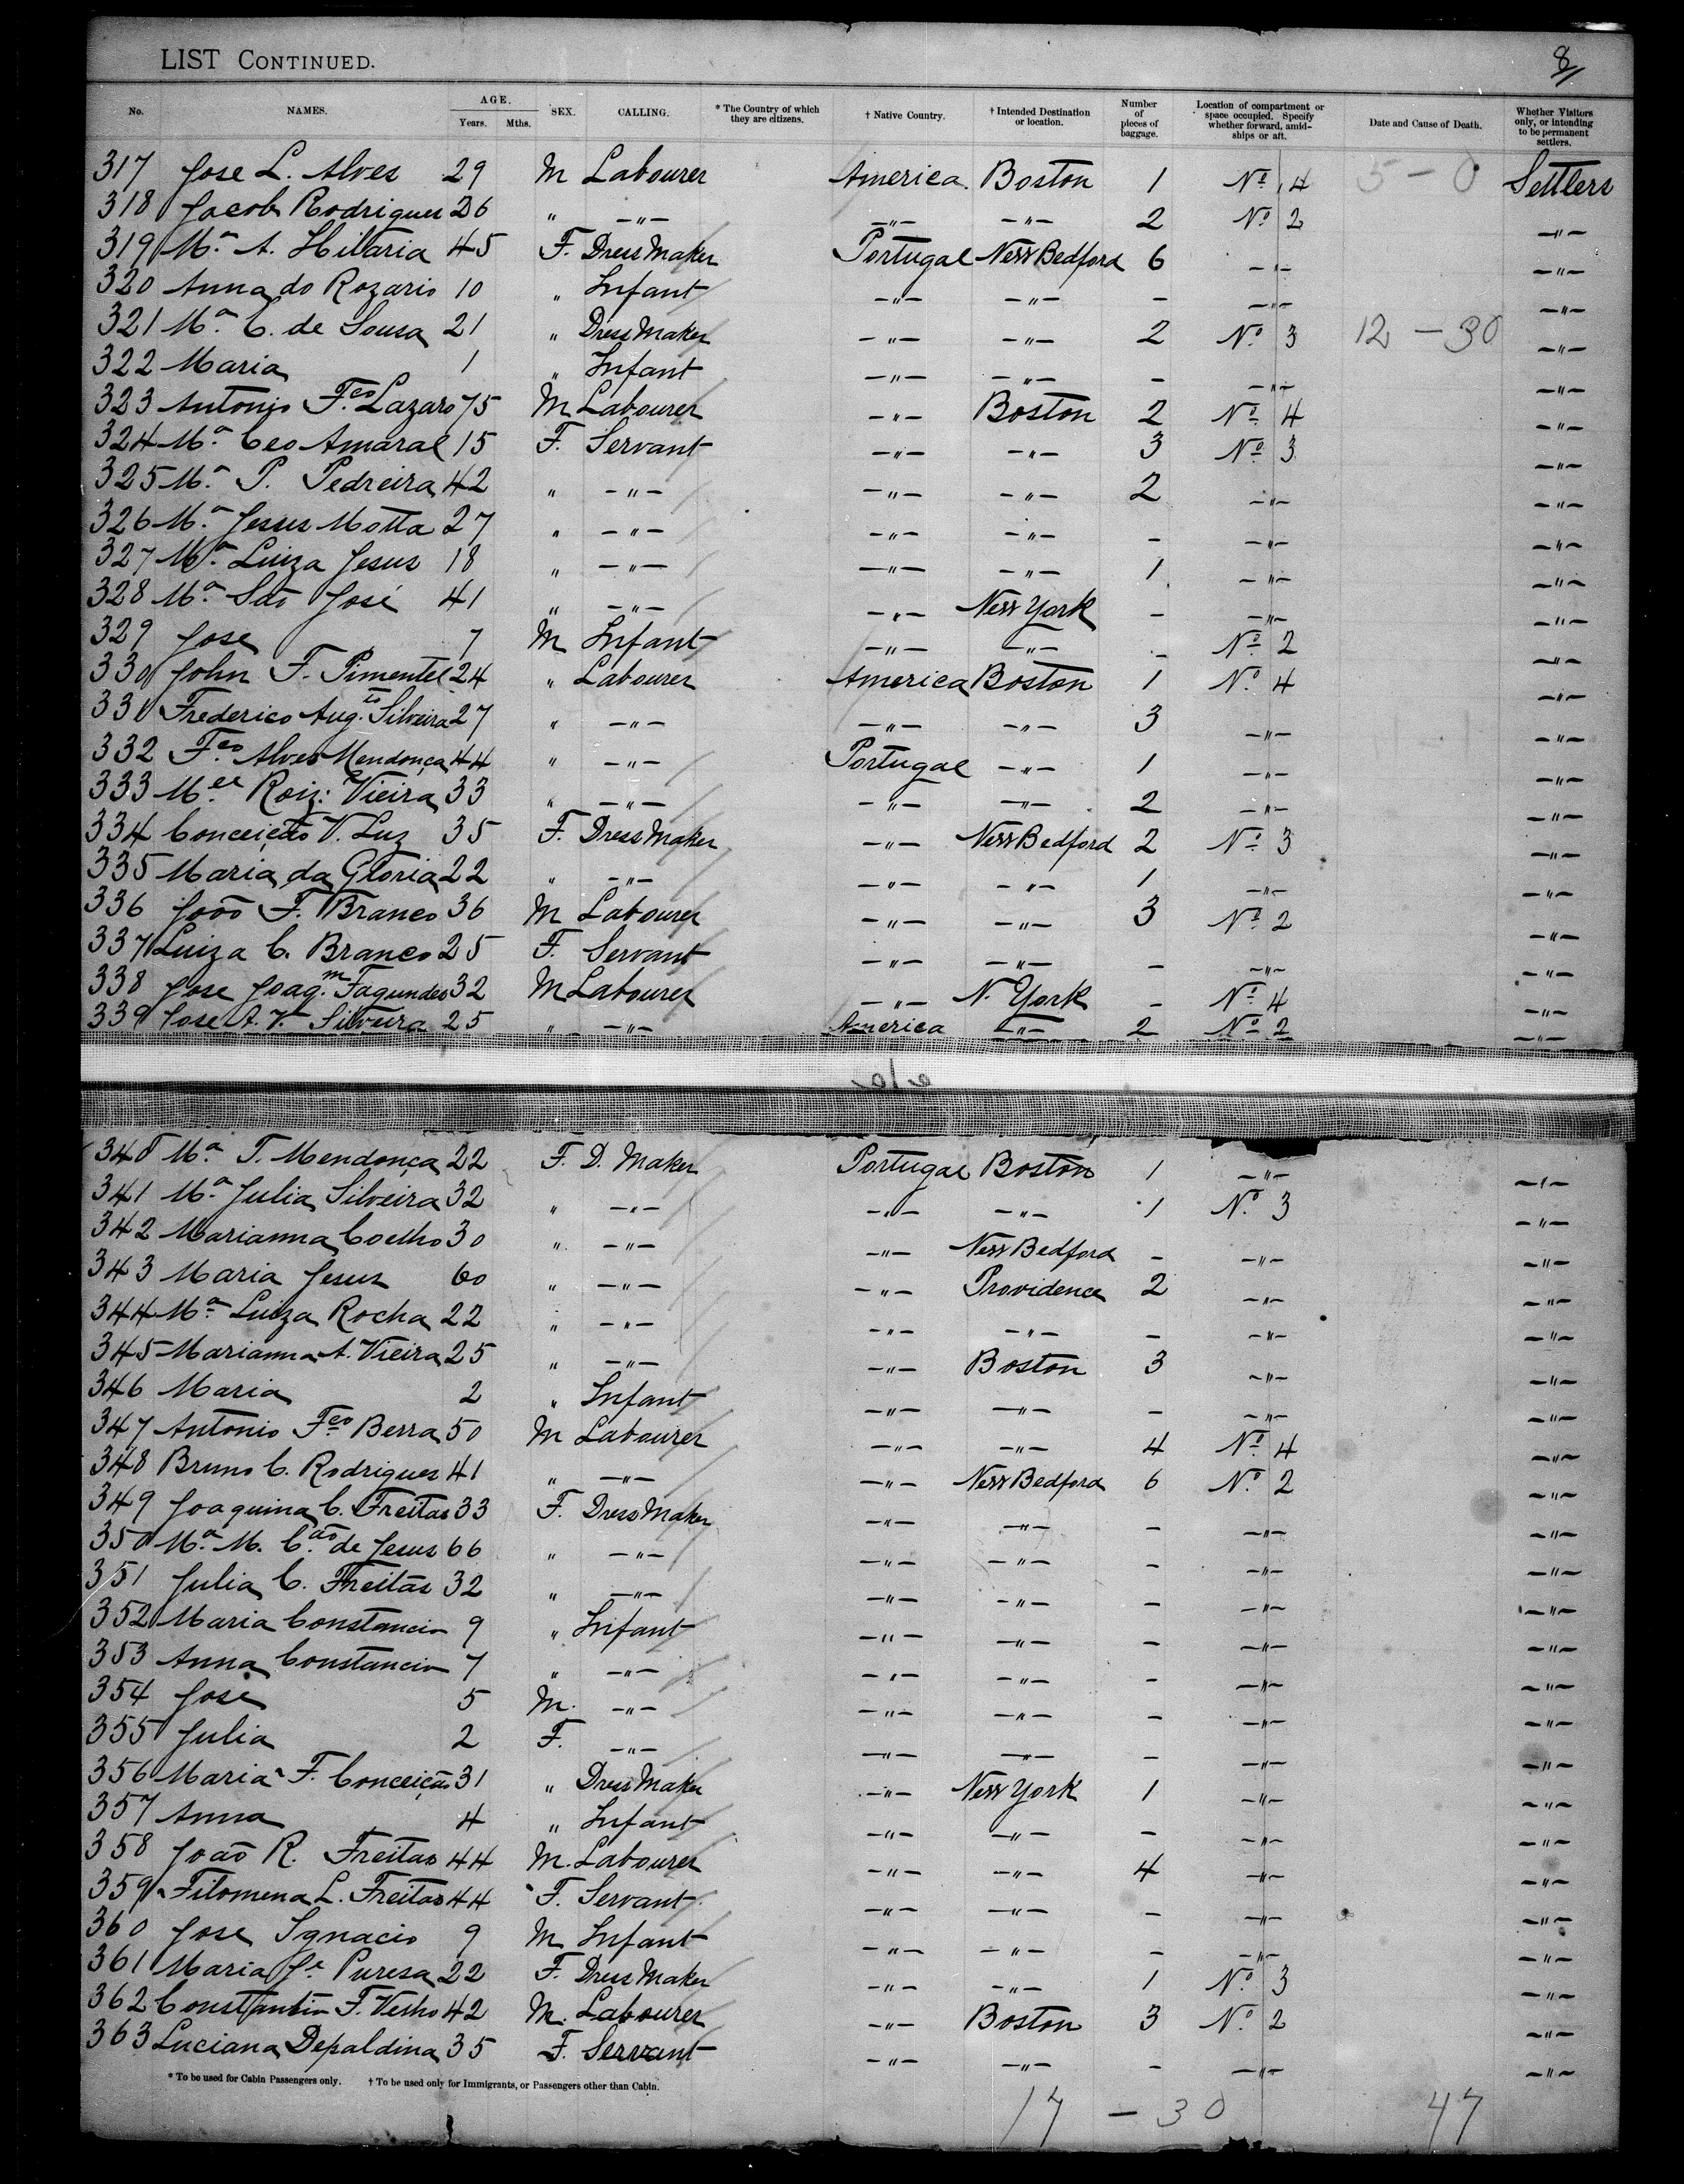 LIST CONTINUED. 8
No. NAMES. AGE. Years. Mths. SEX. CALLING. * The Country of which they are citizens. † Native Country. † Intended Destination or location. Number of pieces of baggage. Location of compartment or space occupied. Specify whether forward, amidships or aft. Date and Cause of Death. Whether Visitors only, or intending to be permanent settlers.
317 Jose L. Alves 29 M Labourer America. Boston 1 No 4 5 - 0 Settlers
318 Jacob Rodrigues 26 " -"- -"- -"- 2 No 2 -"-
319 Ma. A. Hilaria 45 F. Dress Maker Portugal New Bedford 6 -"- -"-
320 Anna do Rozario 10 " Infant -"- -"- - -"- -"-
321 Ma. C. de Sousa 21 " Dress Maker -"- -"- 2 No. 3 12 - 30 -"-
322 Maria 1 " Infant -"- -"- - -"- -"-
323 Antonio Fco. Lazaro 75 M Labourer -"- Boston 2 No 4 -"-
324 Ma. Ceo Amaral 15 F. Servant -"- -"- 3 No 3 -"-
325 Ma. P. Pedreira 42 " -"- -"- -"- 2 -"- -"-
326 Ma. Jesus Motta 27 " -"- -"- -"- - -"- -"-
327 Ma. Luiza Jesus 18 " -"- -"- -"- 1 -"- -"-
328 Ma. São José 41 " -"- -"- New York - -"- -"-
329 Jose 7 M Infant -"- -"- - No 2 -"-
330 John F. Pimentel 24 " Labourer America Boston 1 No. 4 -"-
331 Frederico Aug.to Silveira 27 " -"- -"- -"- 3 -"- -"-
332 Fco. Alves Mendonça 44 " -"- Portugal -"- 1 -"- -"-
333 Mel Roiz: Vieira 33 " -"- -"- -"- 2 -"- -"-
334 Conceição V. Luz 35 F. Dress Maker -"- New Bedford 2 No 3 -"-
335 Maria da Gloria 22 " -"- -"- -"- 1 -"- -"-
336 João F. Branco 36 M Labourer -"- -"- 3 No 2 -"-
337 Luiza C. Branco 25 F. Servant -"- -"- - -"- -"-
338 Jose Joaq.m Fagundes 32 M Labourer -"- N. York - No 4 -"-
339 Jose A. V. Silveira 25 " -"- America -"- 2 No 2 -"-
340 Ma. T. Mendonça 22 F. D. Maker Portugal Boston 1 -"- -"-
341 Ma. Julia Silveira 32 " -"- -"- -"- 1 No. 3 -"-
342 Marianna Coelho 30 " -"- -"- New Bedford - -"- -"-
343 Maria Jesus 60 " -"- -"- Providence 2 -"- -"-
344 Ma. Luiza Rocha 22 " -"- -"- -"- - -"- -"-
345 Marianna A. Vieira 25 " -"- -"- Boston 3 -"- -"-
346 Maria 2 " Infant -"- -"- - -"- -"-
347 Antonio Fco Berra 50 M Labourer -"- -"- 4 No 4 -"-
348 Bruno C. Rodrigues 41 " -"- -"- New Bedford 6 No. 2 -"-
349 Joaquina C. Freitas 33 F. Dress Maker -"- -"- - -"- -"-
350 Ma. M. C.ão de Jesus 66 " -"- -"- -"- - -"- -"-
351 Julia C. Freitas 32 " -"- -"- -"- - -"- -"-
352 Maria Constancia 9 " Infant -"- -"- - -"- -"-
353 Anna Constancia 7 " -"- -"- -"- - -"- -"-
354 Jose 5 M. -"- -"- -"- - -"- -"-
355 Julia 2 F. -"- -"- -"- - -"- -"-
356 Maria F. Conceição 31 " Dress Maker -"- New York 1 -"- -"-
357 Anna 4 " Infant -"- -"- - -"- -"-
358 João R. Freitas 44 M. Labourer -"- -"- 4 -"- -"-
359 Filomena L. Freitas 44 F. Servant -"- -"- - -"- -"-
360 Jose Ignacio 9 M Infant -"- -"- - -"- -"-
361 Maria Je. Puresa 22 F. Dress Maker -"- -"- 1 No. 3 -"-
362 Constantin F. Velho 42 M. Labourer -"- Boston 3 No. 2 -"-
363 Luciana Depaldina 35 F. Servant -"- -"- - -"- -"-
* To be used for Cabin Passengers only. † To be used only for Immigrants, or Passengers other than Cabin.
17 - 30 47